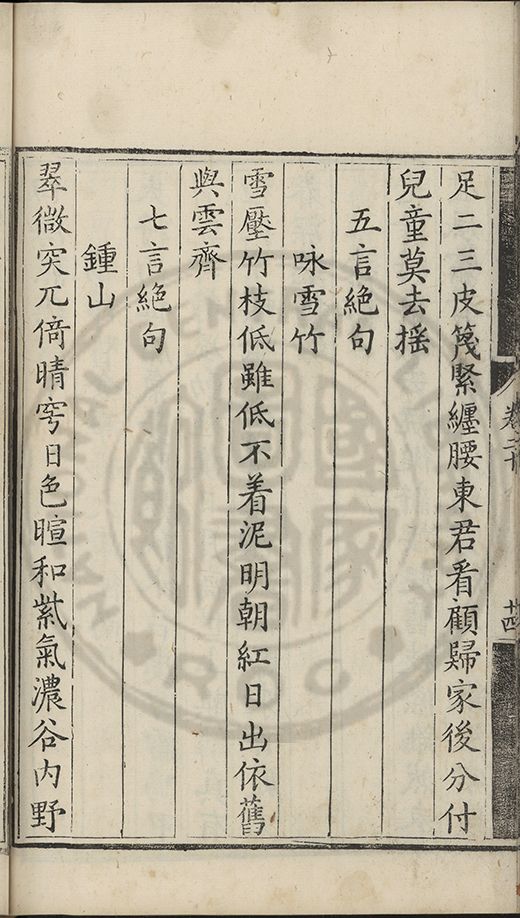 卷二十
廿四
足二三皮篾緊纏腰東君看顧歸家後分付
兒童莫去摇
五言絕句
咏雪竹
雪壓竹枝低雖低不着泥明朝紅日出依舊
與雲齊
七言絕句
鍾山
翠微突兀倚晴穹日色暄和紫氣濃谷内野